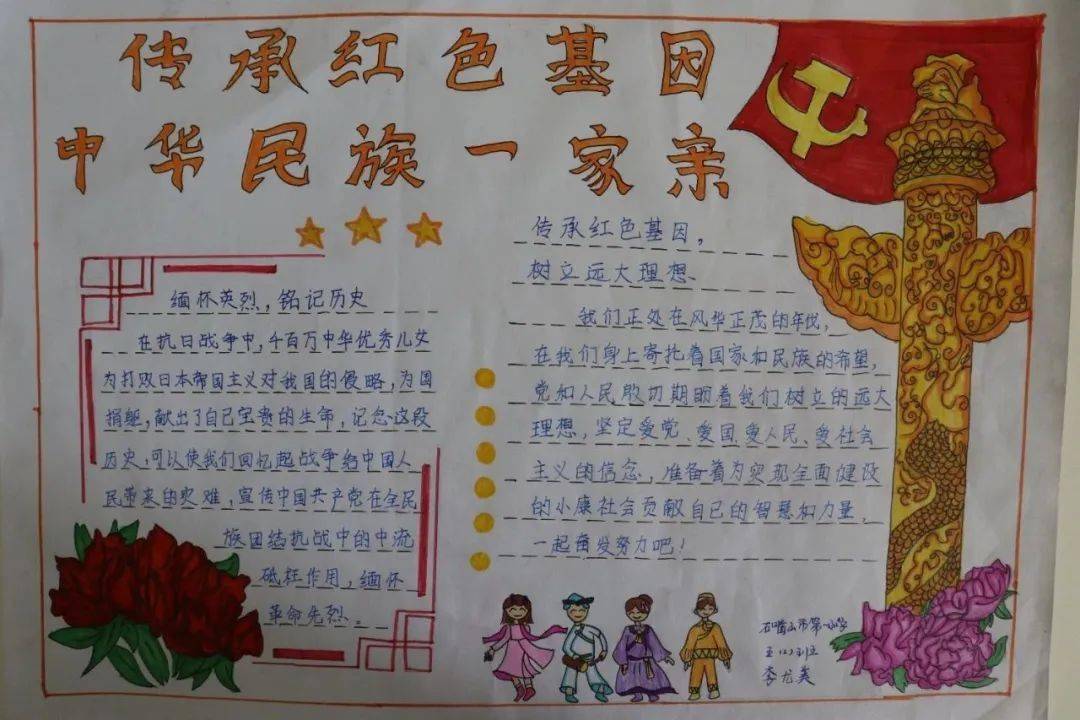 传承红色基因
中华民族一家亲
缅怀英烈，铭记历史
在抗日战争中，千百万中华优秀儿女
为打败日本帝国主义对我国的侵略，为国
捐躯，献出了自己宝贵的生命，记念这段
历史，可以使我们回忆起战争给中国人
民带来的灾难，宣传中国共产党在全民
族团结抗战中的中流
砥柱作用，缅怀
革命先烈。
传承红色基因，
树立远大理想、
我们正处在风华正茂的年代，
在我们身上寄托着国家和民族的希望，
党和人民殷切期盼着我们树立的远大
理想，坚定爱党、爱国、爱人民、爱社会
主义的信念，准备着为实现全面建设
的小康社会贡献自己的智慧和力量，
一起奋发努力吧！
石嘴山市第一小学
五(2)班
李尤美